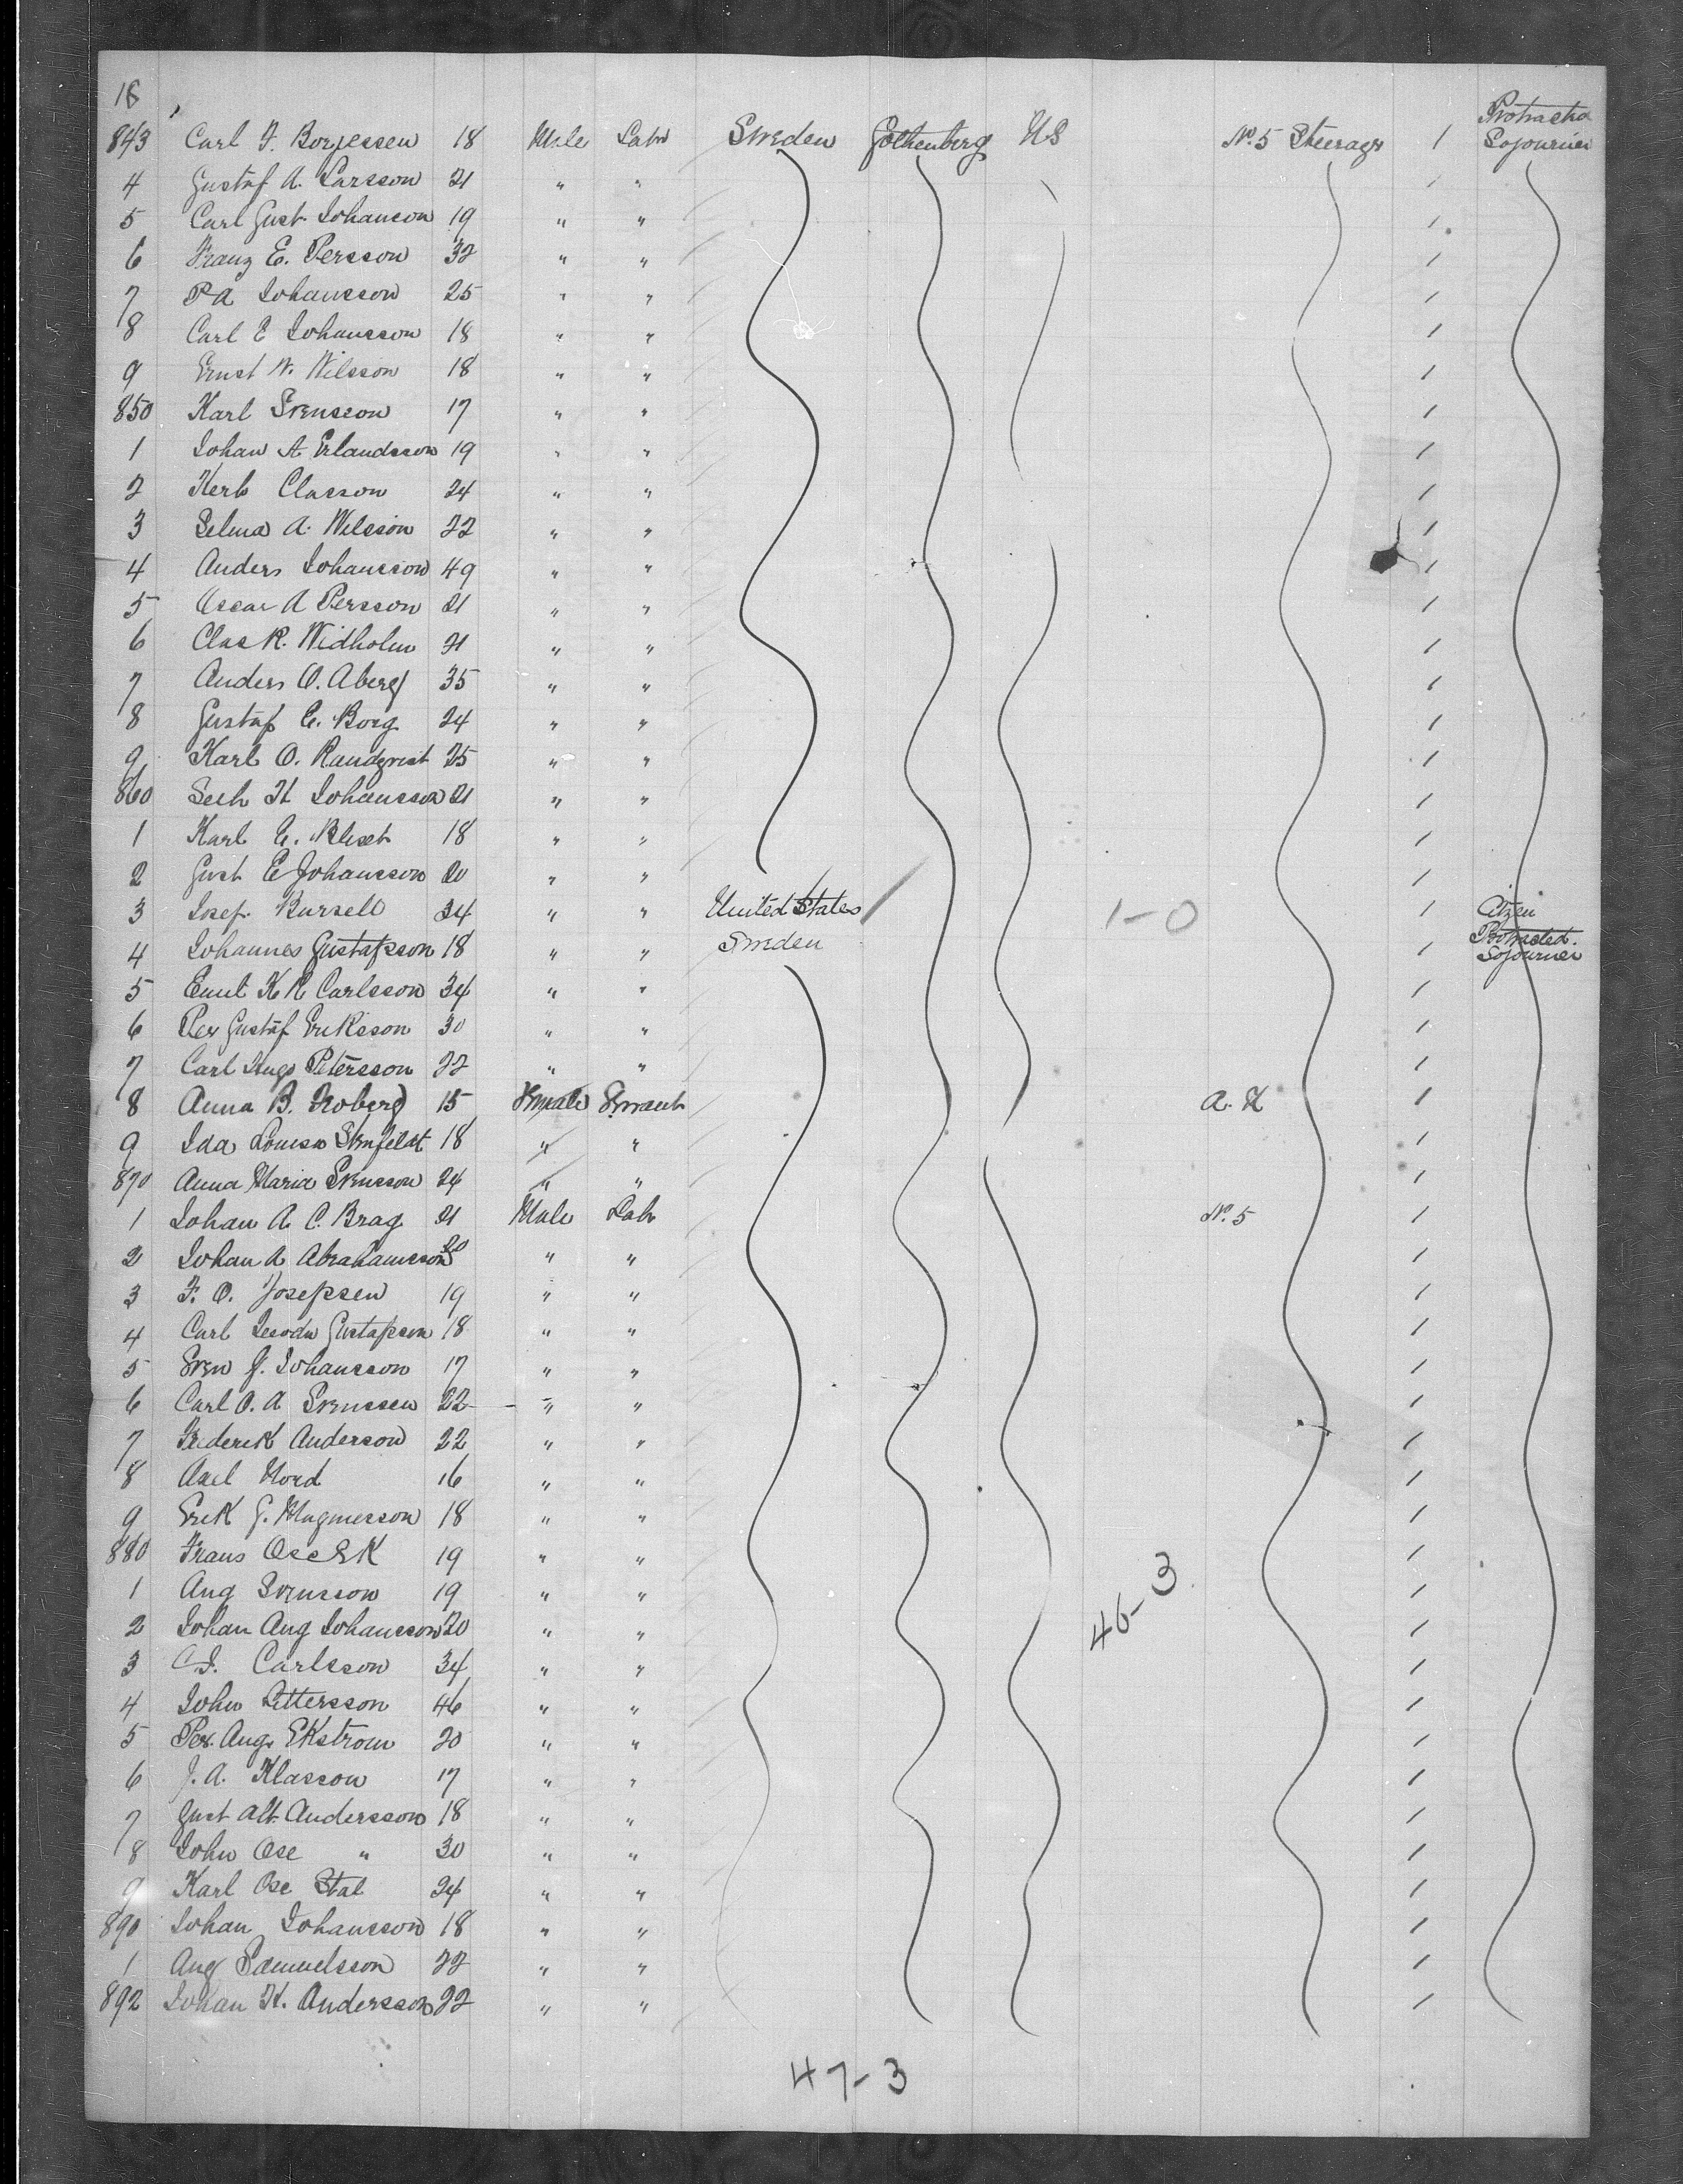 18
843 Carl F. Borjessen 18 Male Labr Sweden Gothenberg US No. 5 Steerage / Protracted Sojourner
4 Gustaf A. Larsson 21 " " /
5 Carl Gust Johanson 19 " " /
6 Franz E. Persson 32 " " /
7 P A Johansson 25 " " /
8 Carl E Johansson 18 " " /
9 Ernst W. Nilsson 18 " " /
850 Karl Svensson 17 " " /
1 Johan A Erlandsson 19 " " /
2 Classon 24 " " /
3 Selma A. Nilsson 22 " " /
4 Anders Johansson 49 " " /
5 Oscar A Persson 21 " " /
6 Clas R. Widholm 21 " " /
7 Anders O. Aberg 35 " " /
8 Gustaf E. Borg 24 " " /
9 Karl O. Randqvist 25 " " /
860 H Johansson 21 " " /
1 Karl E. 18 " " /
2 Gust E Johansson 20 " " /
3 Josef Bursell 34 " " United States 1-0 / Citizen
4 Johannes Gustafsson 18 " " Sweden / Protracted Sojourner
5 Emil K R Carlsson 34 " " /
6 Per Gustaf Eriksson 30 " " /
7 Carl Hugo Petersson 22 " " /
8 Anna B. Froberg 15 Female Servant A. H /
9 Ida Lovisa 18 " " /
870 Anna Maria Svensson 24 " " /
1 Johan A. C. Brag 21 Male Labr No. 5 /
2 Johan A Abrahamsson 20 " " /
3 F. O. Josefsen 19 " " /
4 Carl Gustafsson 18 " " /
5 Sven J. Johansson 17 " " /
6 Carl O. A Svenssen 22 " " /
7 Frederik Anderson 22 " " /
8 Axel Nord 16 " " /
9 Erik G. Magnusson 18 " " /
880 Frans 19 " " /
1 Aug Svensson 19 " " 46-3 /
2 Johan Aug Johansson 20 " " /
3 C J. Carlsson 34 " " /
4 John Pettersson 46 " " /
5 Per. Aug. Ekstrom 20 " " /
6 J. A. Klasson 17 " " /
7 Gust Alf. Andersson 18 " " /
8 John Osc " 30 " " /
9 Karl Osc Stal 24 " " /
890 Johan Johansson 18 " " /
1 Aug Samuelsson 22 " " /
892 Johan H. Andersson 22 " " /
47-3